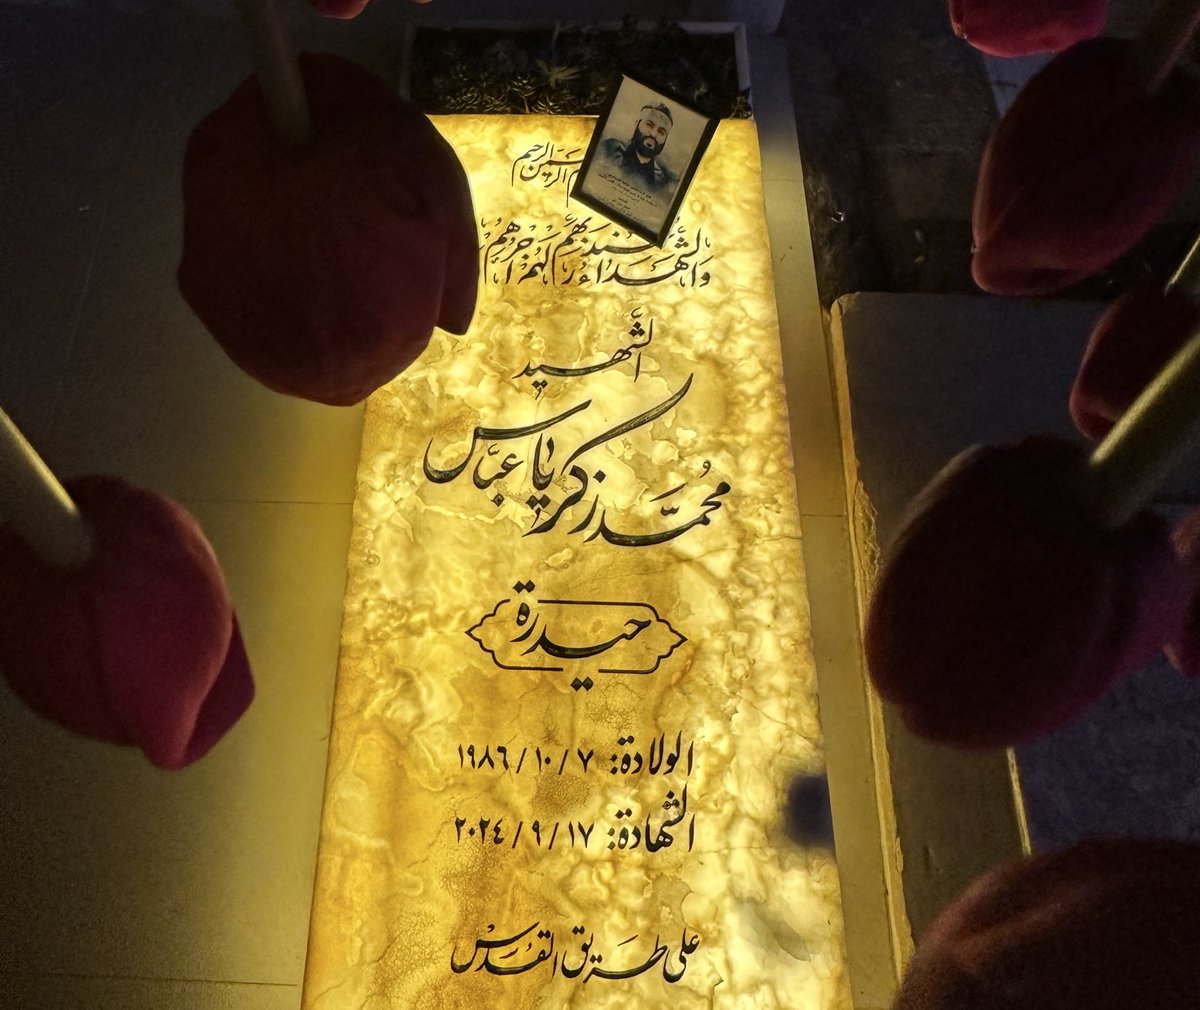 الرحمن الرحيم
والشهداء عند ربهم لهم أجرهم
الشهيد
محمد زكريا عباس
حيدرة
الولادة: ٧ / ١٠ / ١٩٨٦
الشهادة: ١٧ / ٩ / ٢٠٢٤
على طريق القدس